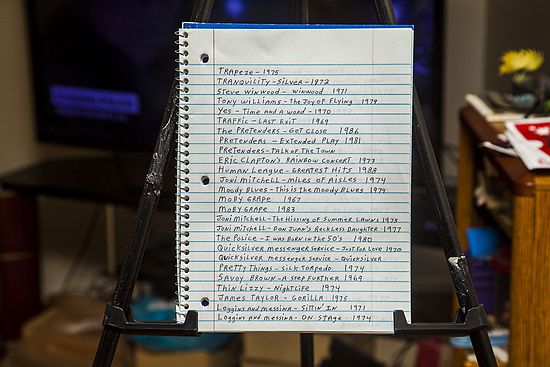 TRAPEZE - 1975
TRANQUILITY - SILVER - 1972
STEVE WINWOOD - WINWOOD 1971
TONY WILLIAMS - THE JOY OF FLYING 1979
YES - TIME AND A WORD - 1970
TRAFFIC - LAST EXIT 1969
THE PRETENDERS - GET CLOSE 1986
PRETENDERS - EXTENDED PLAY 1981
PRETENDERS - TALK OF THE TOWN
ERIC CLAPTON'S RAINBOW CONCERT 1973
HUMAN LEAGUE - GREATEST HITS 1988
JONI MITCHELL - MILES OF AISLES 1974
MOODY BLUES - THIS IS THE MOODY BLUES 1974
MOBY GRAPE 1967
MOBY GRAPE 1983
JONI MITCHELL - THE HISSING OF SUMMER LAWNS 1975
JONI MITCHELL - DON JUAN'S RECKLESS DAUGHTER 1977
THE POLICE - I WAS BORN IN THE 50'S 1980
QUICKSILVER MESSENGER SERVICE - JUST FOR LOVE 1970
QUICKSILVER MESSENGER SERVICE - QUICKSILVER
PRETTY THINGS - SILK TORPEDO 1974
SAVOY BROWN - A STEP FURTHER 1969
THIN LIZZY - NIGHTLIFE 1974
JAMES TAYLOR - GORILLA 1975
LOGGINS AND MESSINA - SITTIN' IN 1971
LOGGINS AND MESSINA - ON STAGE 1974